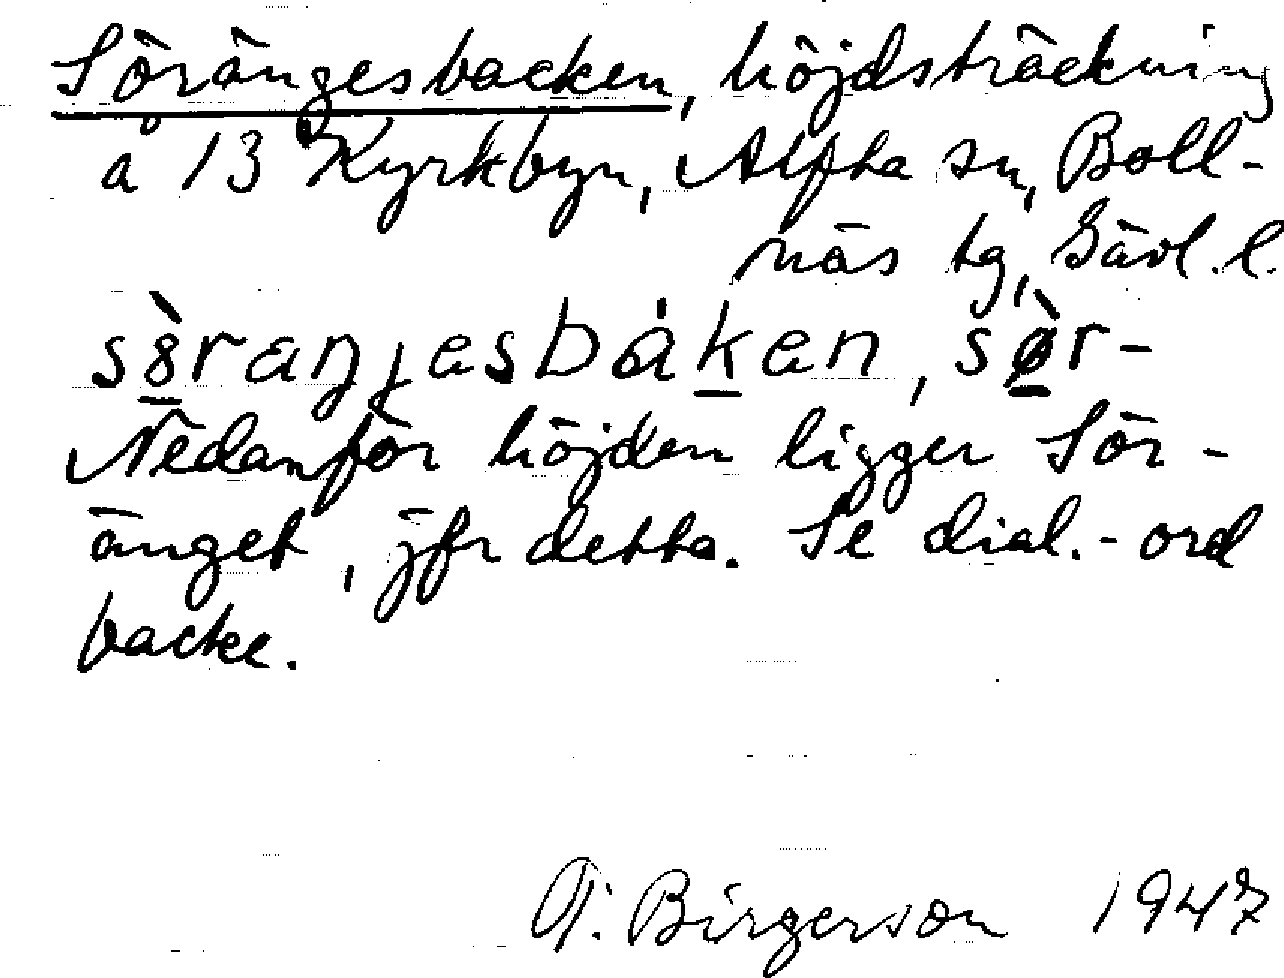 Sörängesbacken, höjdsträckning
å 13 Kyrkbyn, Alfta sn, Boll-
näs tg, Gävl. l.
sö̀raŋɟesbáken, sø̀r-
Nedanför höjden ligger Sör-
änget, jfr detta. Se dial.-ord
backe.
Birgerson 1947